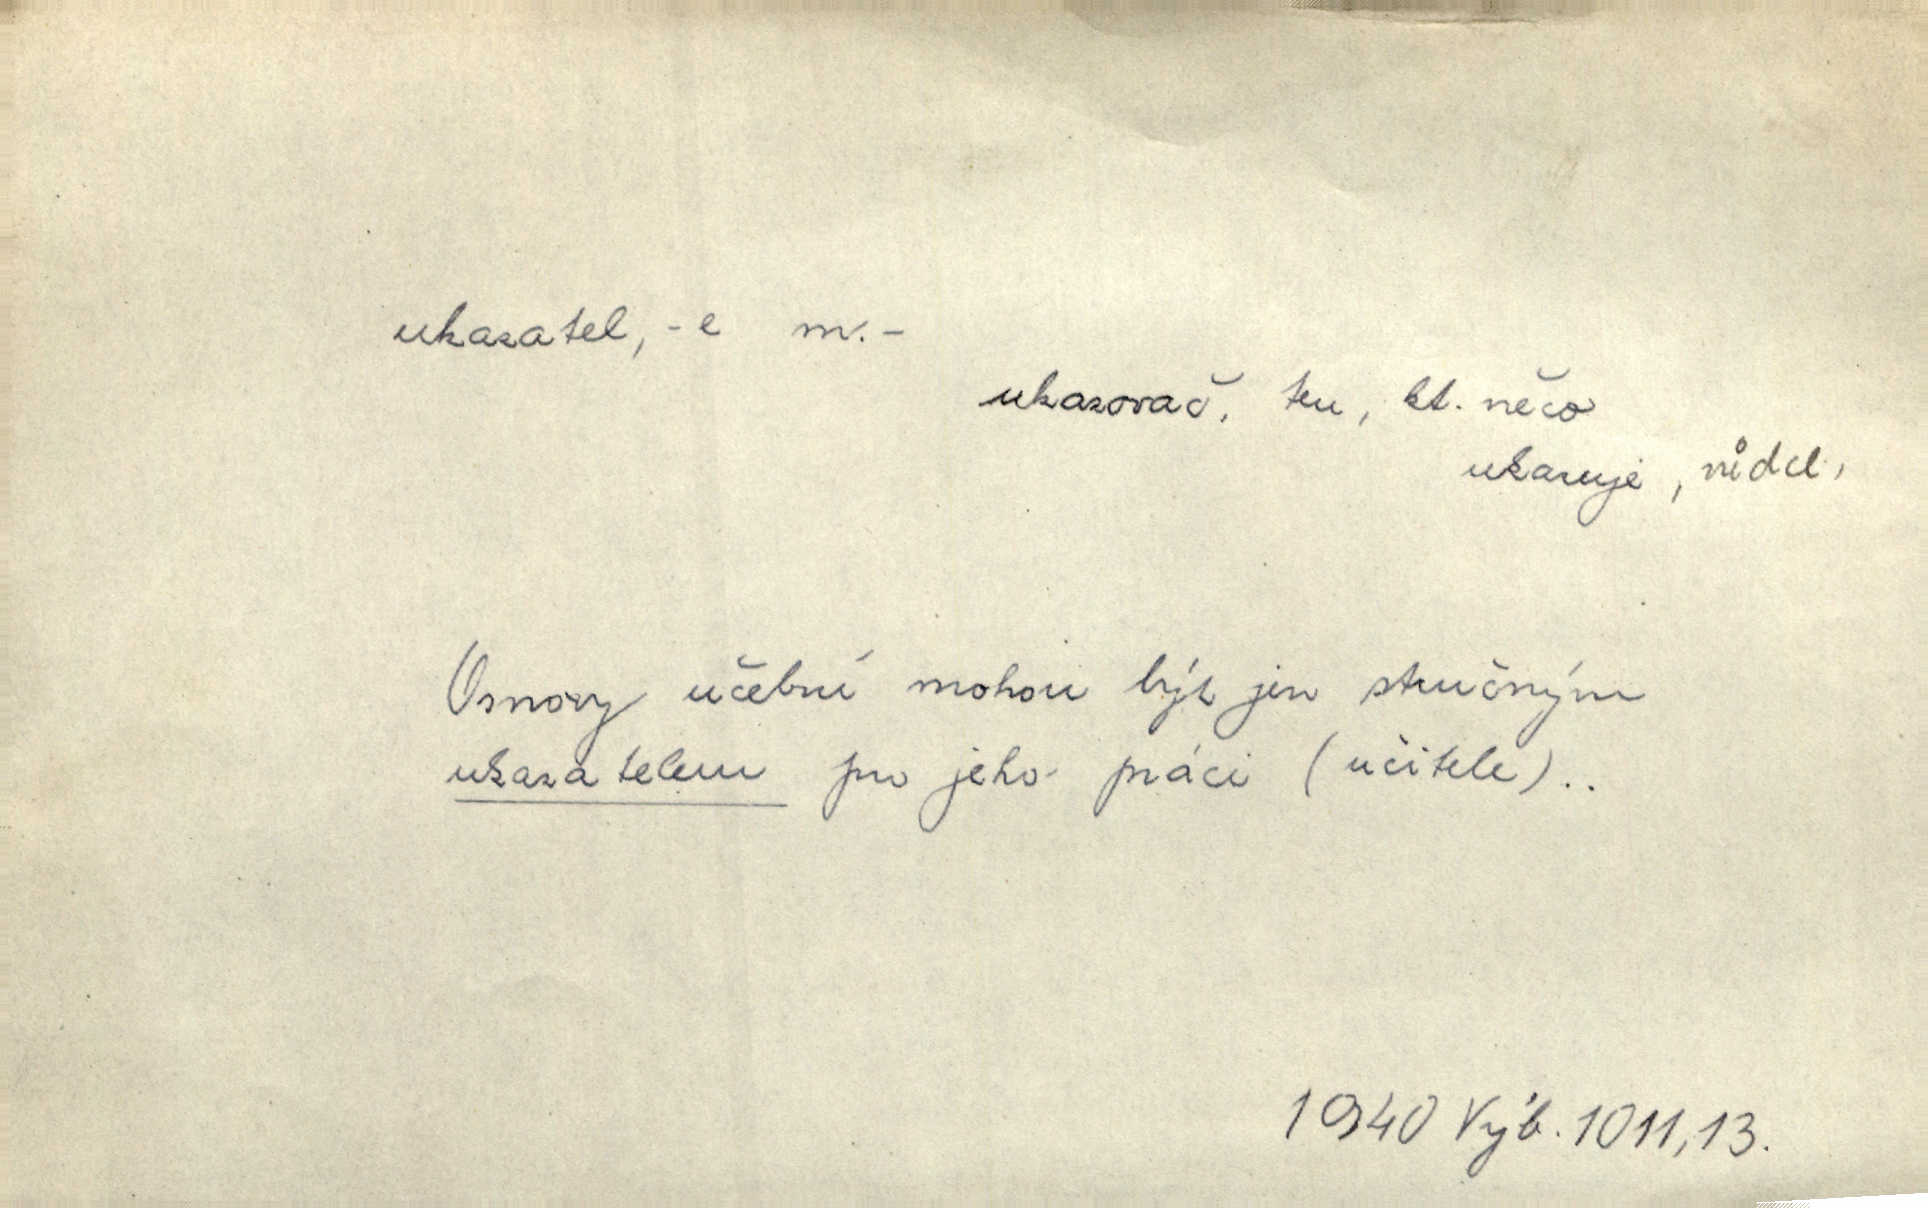 ukazatel, -e m. -
ukazovač, ten, kt. něco
ukazuje, vůdce,
Osnovy učební mohou být jen stručným
ukazatelem pro jeho práci (učitele)..
1940 Výb. 1011,13.